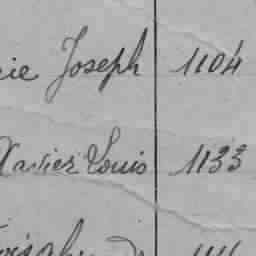 ie Joseph 1104
Xavier Louis 1133